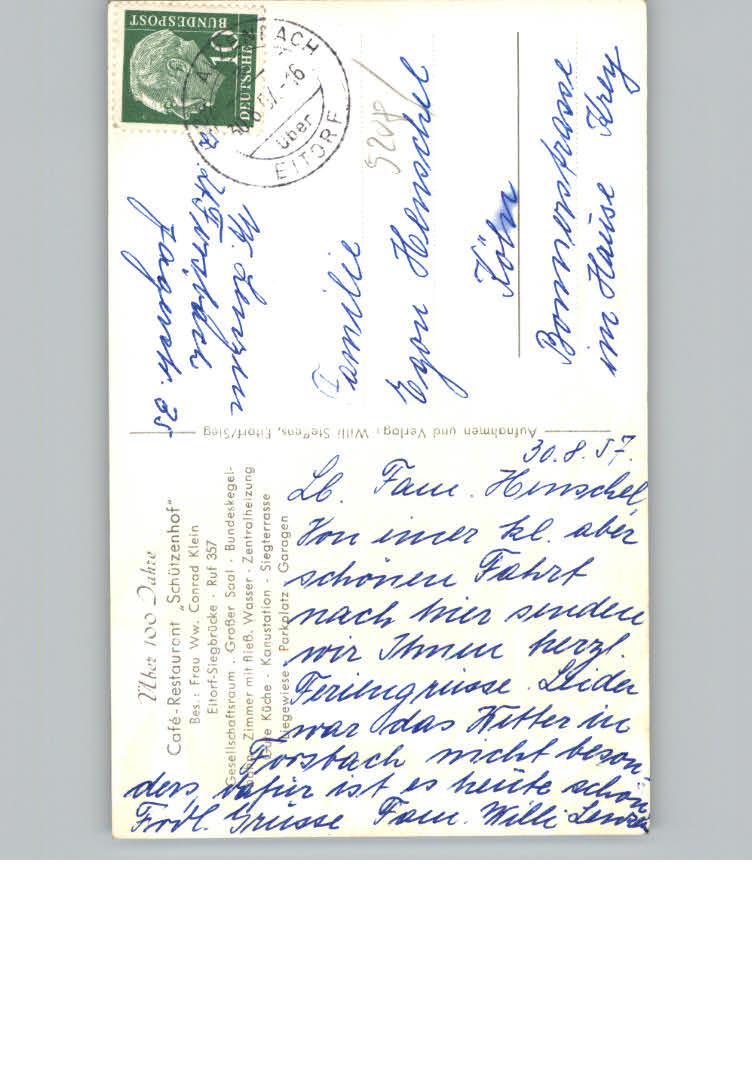 Über 100 Jahre
Café-Restaurant „Schützenhof"
Bes.: Frau Ww. Conrad Klein
Eitorf-Siegbrücke · Ruf 357
Gesellschaftsraum · Großer Saal · Bundeskegel-
Zimmer mit fließ. Wasser · Zentralheizung
Gute Küche · Kanustation · Siegterrasse
Liegewiese · Parkplatz · Garagen
30.8.57.
Lb. Fam. Henschel
Von einer kl. aber
schönen Fahrt
nach hier senden
wir Ihnen herzl.
Feriengrüsse. Leider
war das Wetter in
Forsbach nicht beson-
ders, dafür ist es heute schön
Frdl. Grüsse Fam. Willi Lenzen
Aufnahmen und Verlag: Willi Steffens, Eitorf/Sieg
DEUTSCHE
BUNDESPOST
10
über
EITORF
W. Lenzen
z. Zt. Forsbach
Jägerstr. 35
5208
Familie
Egon Henschel
Köln
Bonnerstrasse
im Hause Krey